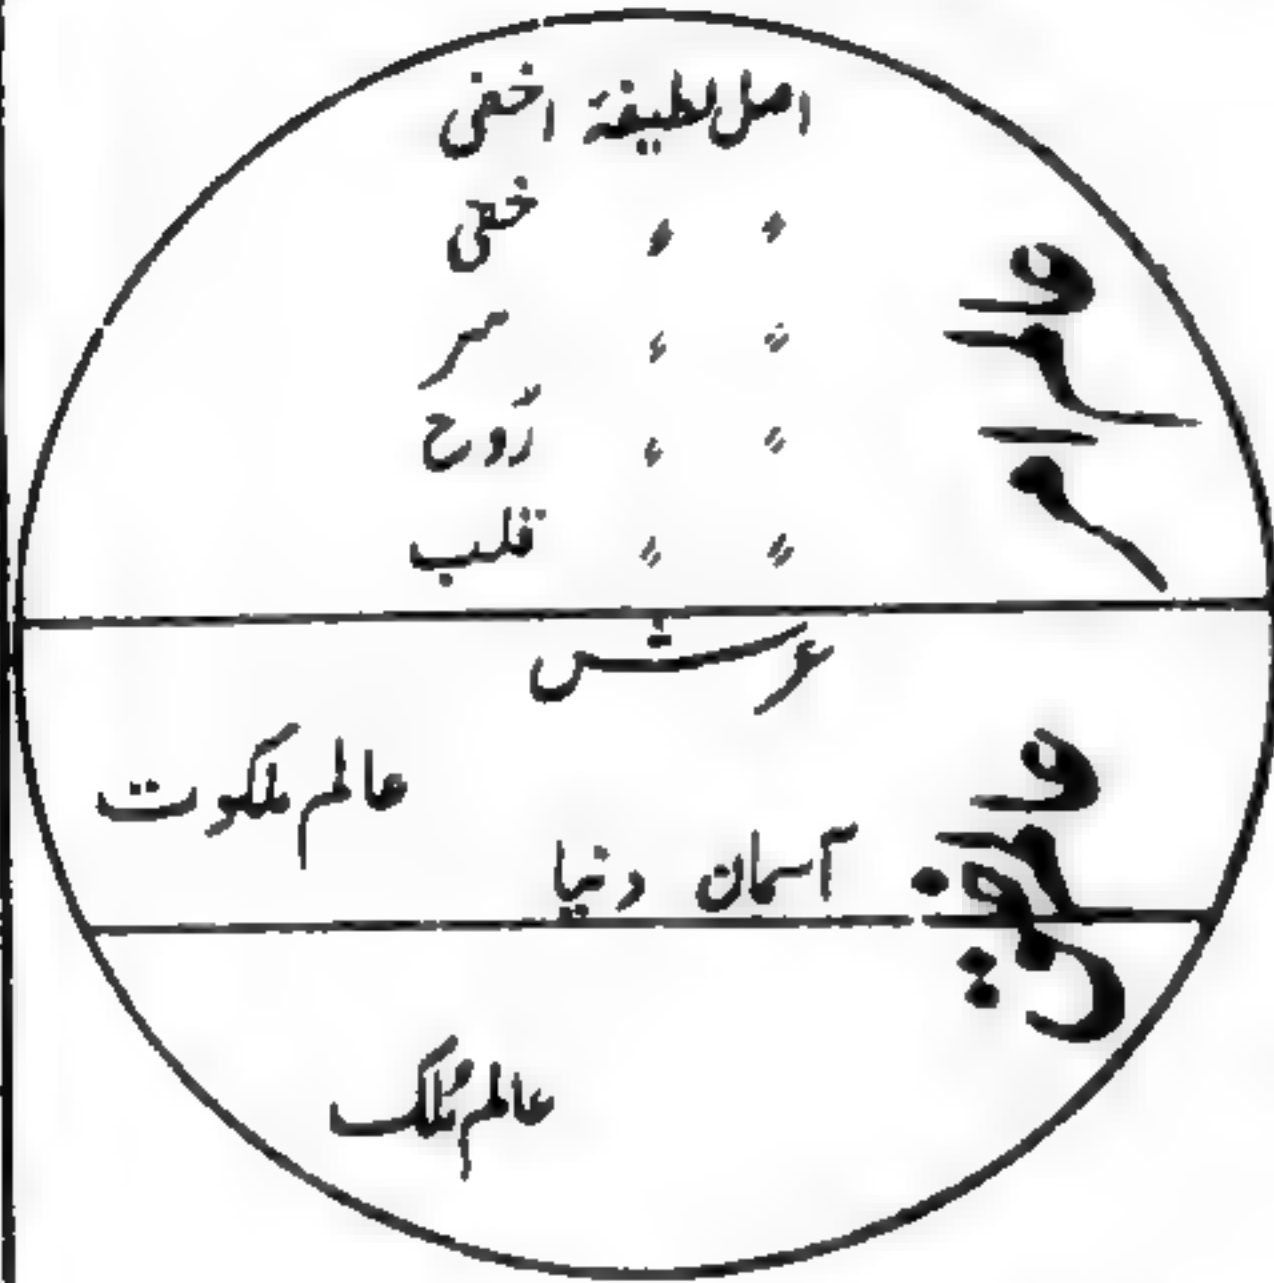 اصل لطیفۂ اخفی
〃 〃 خفی
〃 〃 سر
〃 〃 رُوح
〃 〃 قلب
عالم امر
عرش
عالم ملکوت
آسمان دنیا
عالم خلق
عالم مُلک